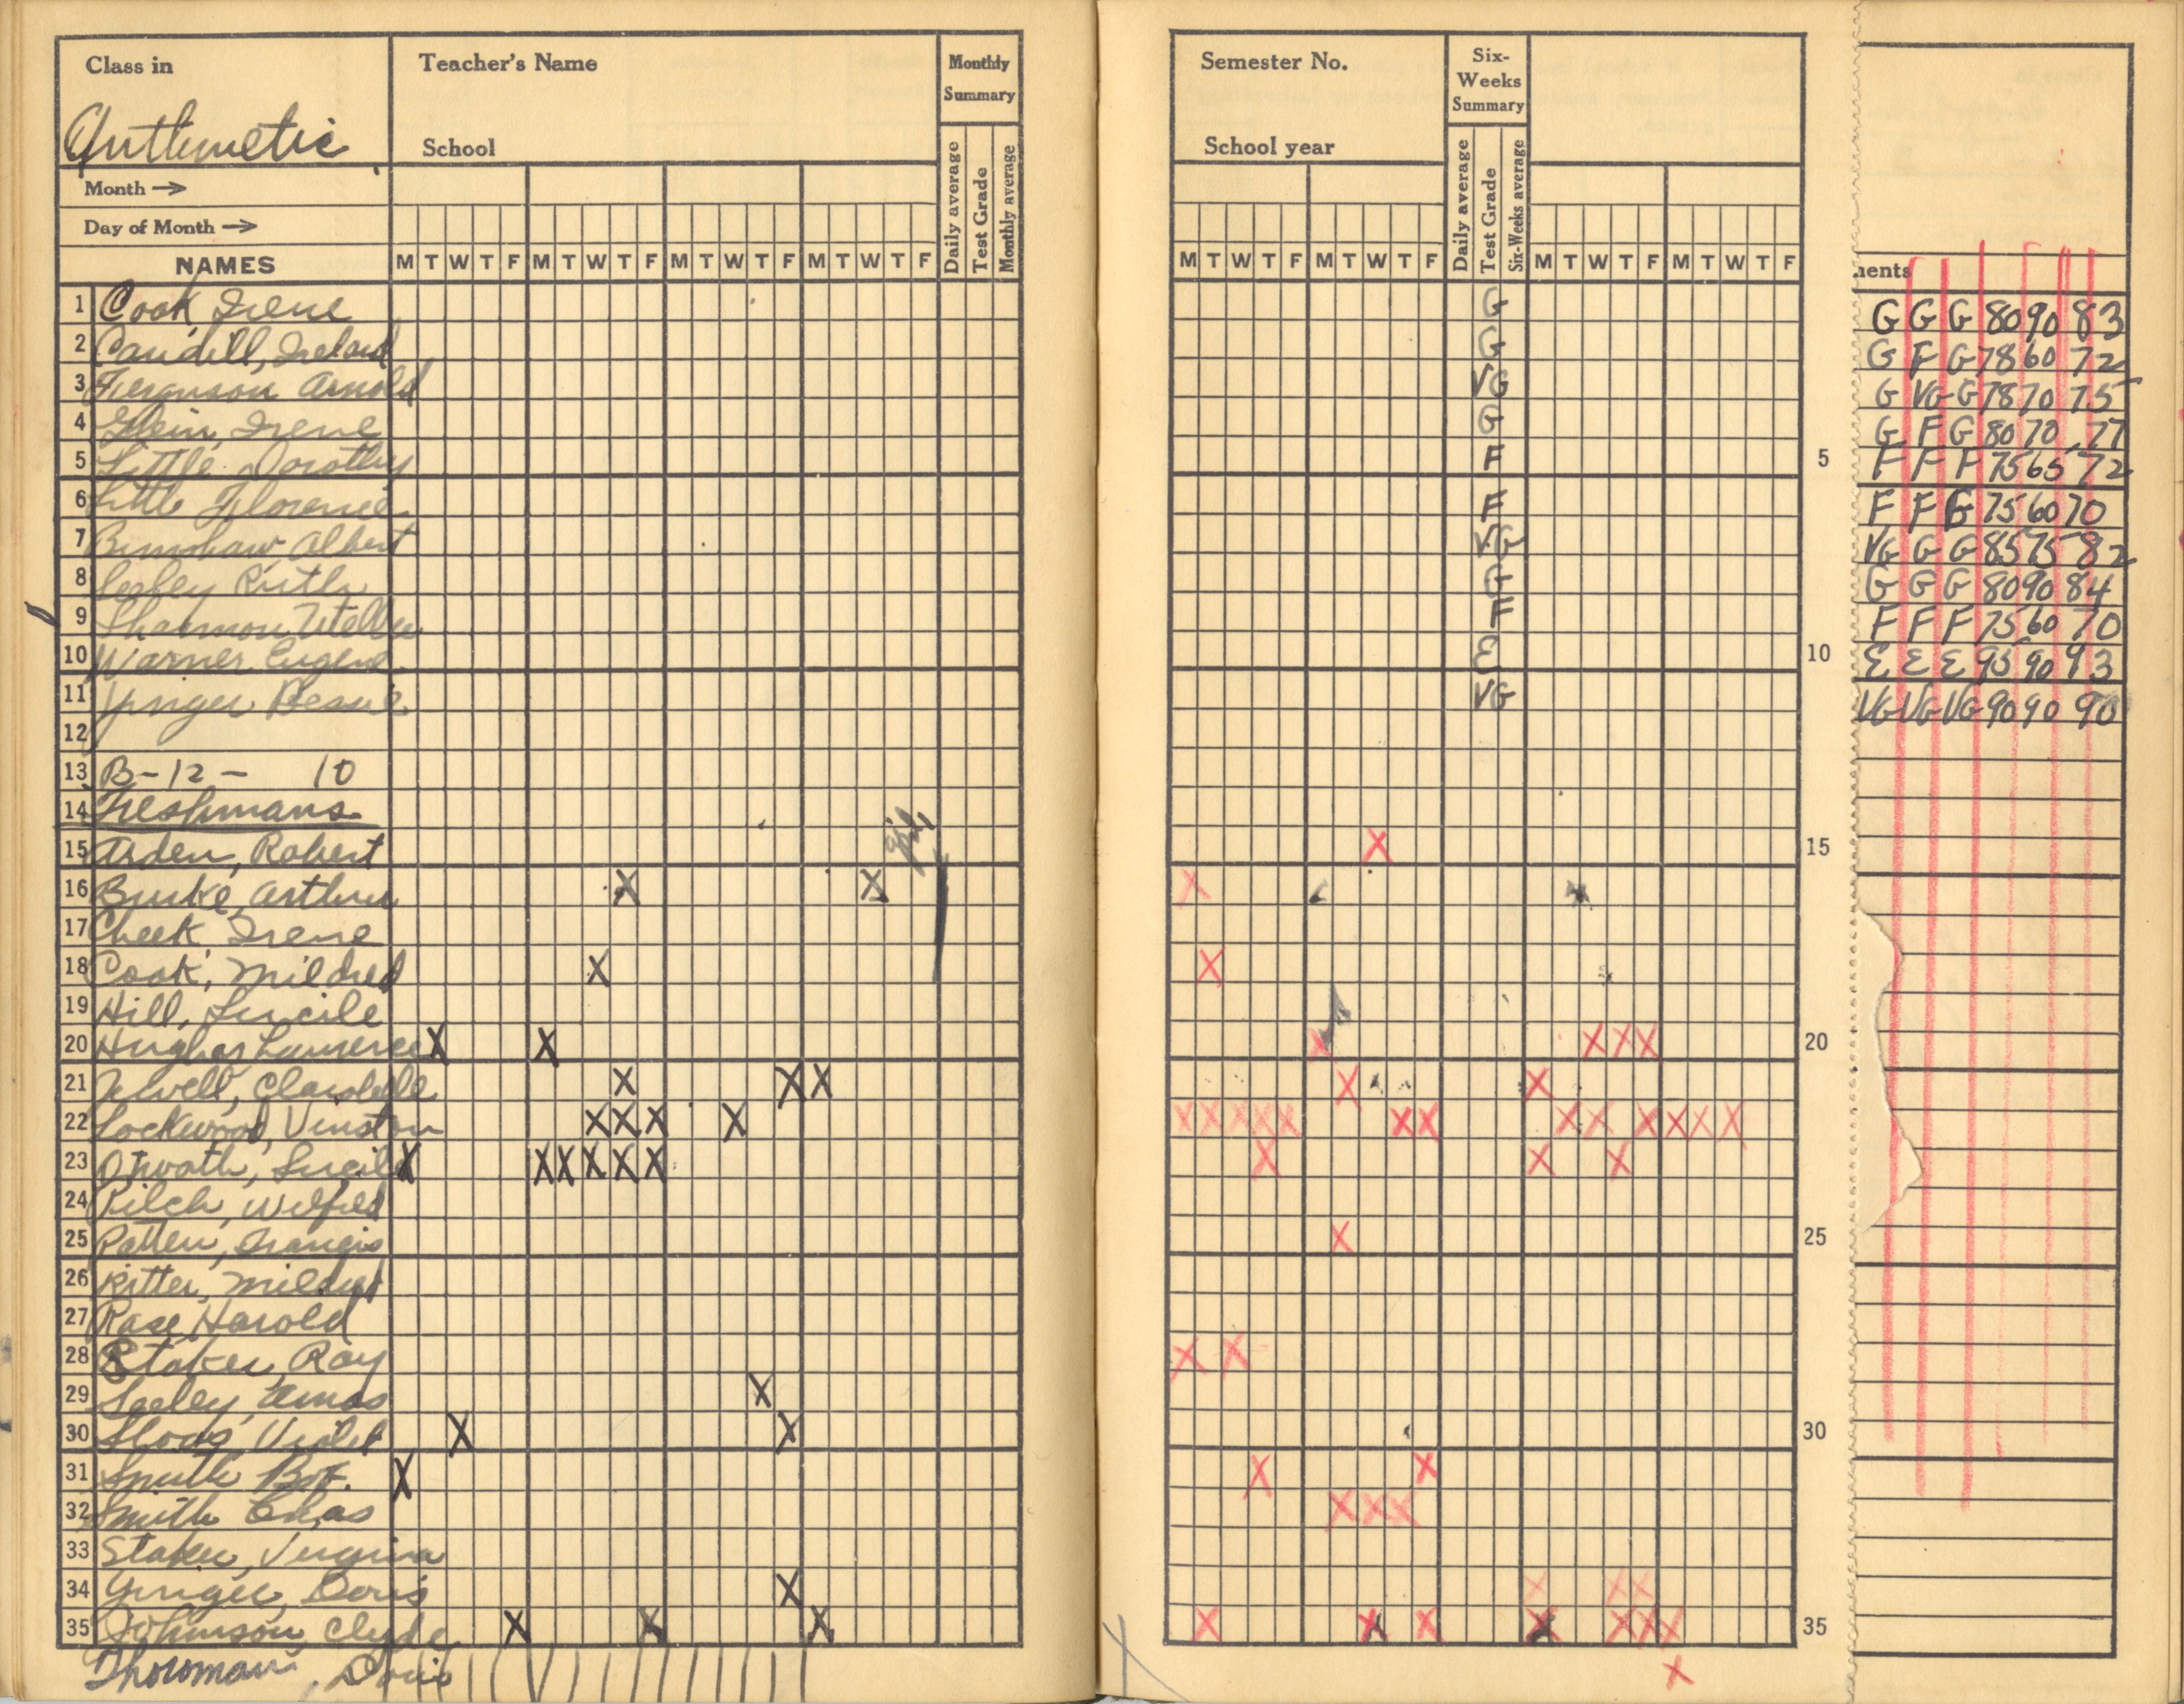 Class in
Arithmetic
Teacher's Name
School
Monthly Summary
Semester No.
School year
Six-Weeks Summary
Month →
Day of Month →
Daily average
Test Grade
Monthly average
Daily average
Test Grade
Six-Weeks average
NAMES M T W T F M T W T F M T W T F M T W T F M T W T F M T W T F M T W T F M T W T F
ments
1 Cook, Irene G G G G 80 90 83
2 Caudill, Ireland G G F G 78 60 72
3 Ferguson Arnold VG G VG G 78 70 75
4 Glein, Irene G G F G 80 70 77
5 Little Dorothy F 5 F F F 75 65 72
6 Little Florence F F F G 75 60 70
7 Albert VG VG G G 85 75 82
8 Seeley Ruth G G G G 80 90 84
9 Shannon F F F F 75 60 70
10 Warner Eugene E 10 E E E 95 90 93
11 Yinger Bessie VG VG VG VG 90 90 90
12
13 B-12- 10
14 Freshmans
15 Arden, Robert X 15
16 Burke, Arthur X X X
17 Cheek, Irene
18 Cook, Mildred X X
19 Hill, Lucile
20 Hughes Lawrence X X X X X X 20
21 Jewell, Clarabelle X X X X X
22 Lockwood, Vinston X X X X X X X X X X X X X X X X X
23 Lucile X X X X X X X X X
24 Pilch, Wilfred
25 Patten, Francis X 25
26 Ritter, Mildred
27 Rase, Harold
28 Staker, Ray X X
29 Seeley, Amos X
30 Violet X X 30
31 Smith X X X
32 Smith Chas X X X
33 Staker, Virginia
34 Yinger, Doris X X X X
35 Johnson, Clyde X X X X X X X X X X 35
Thoroman, Doris X